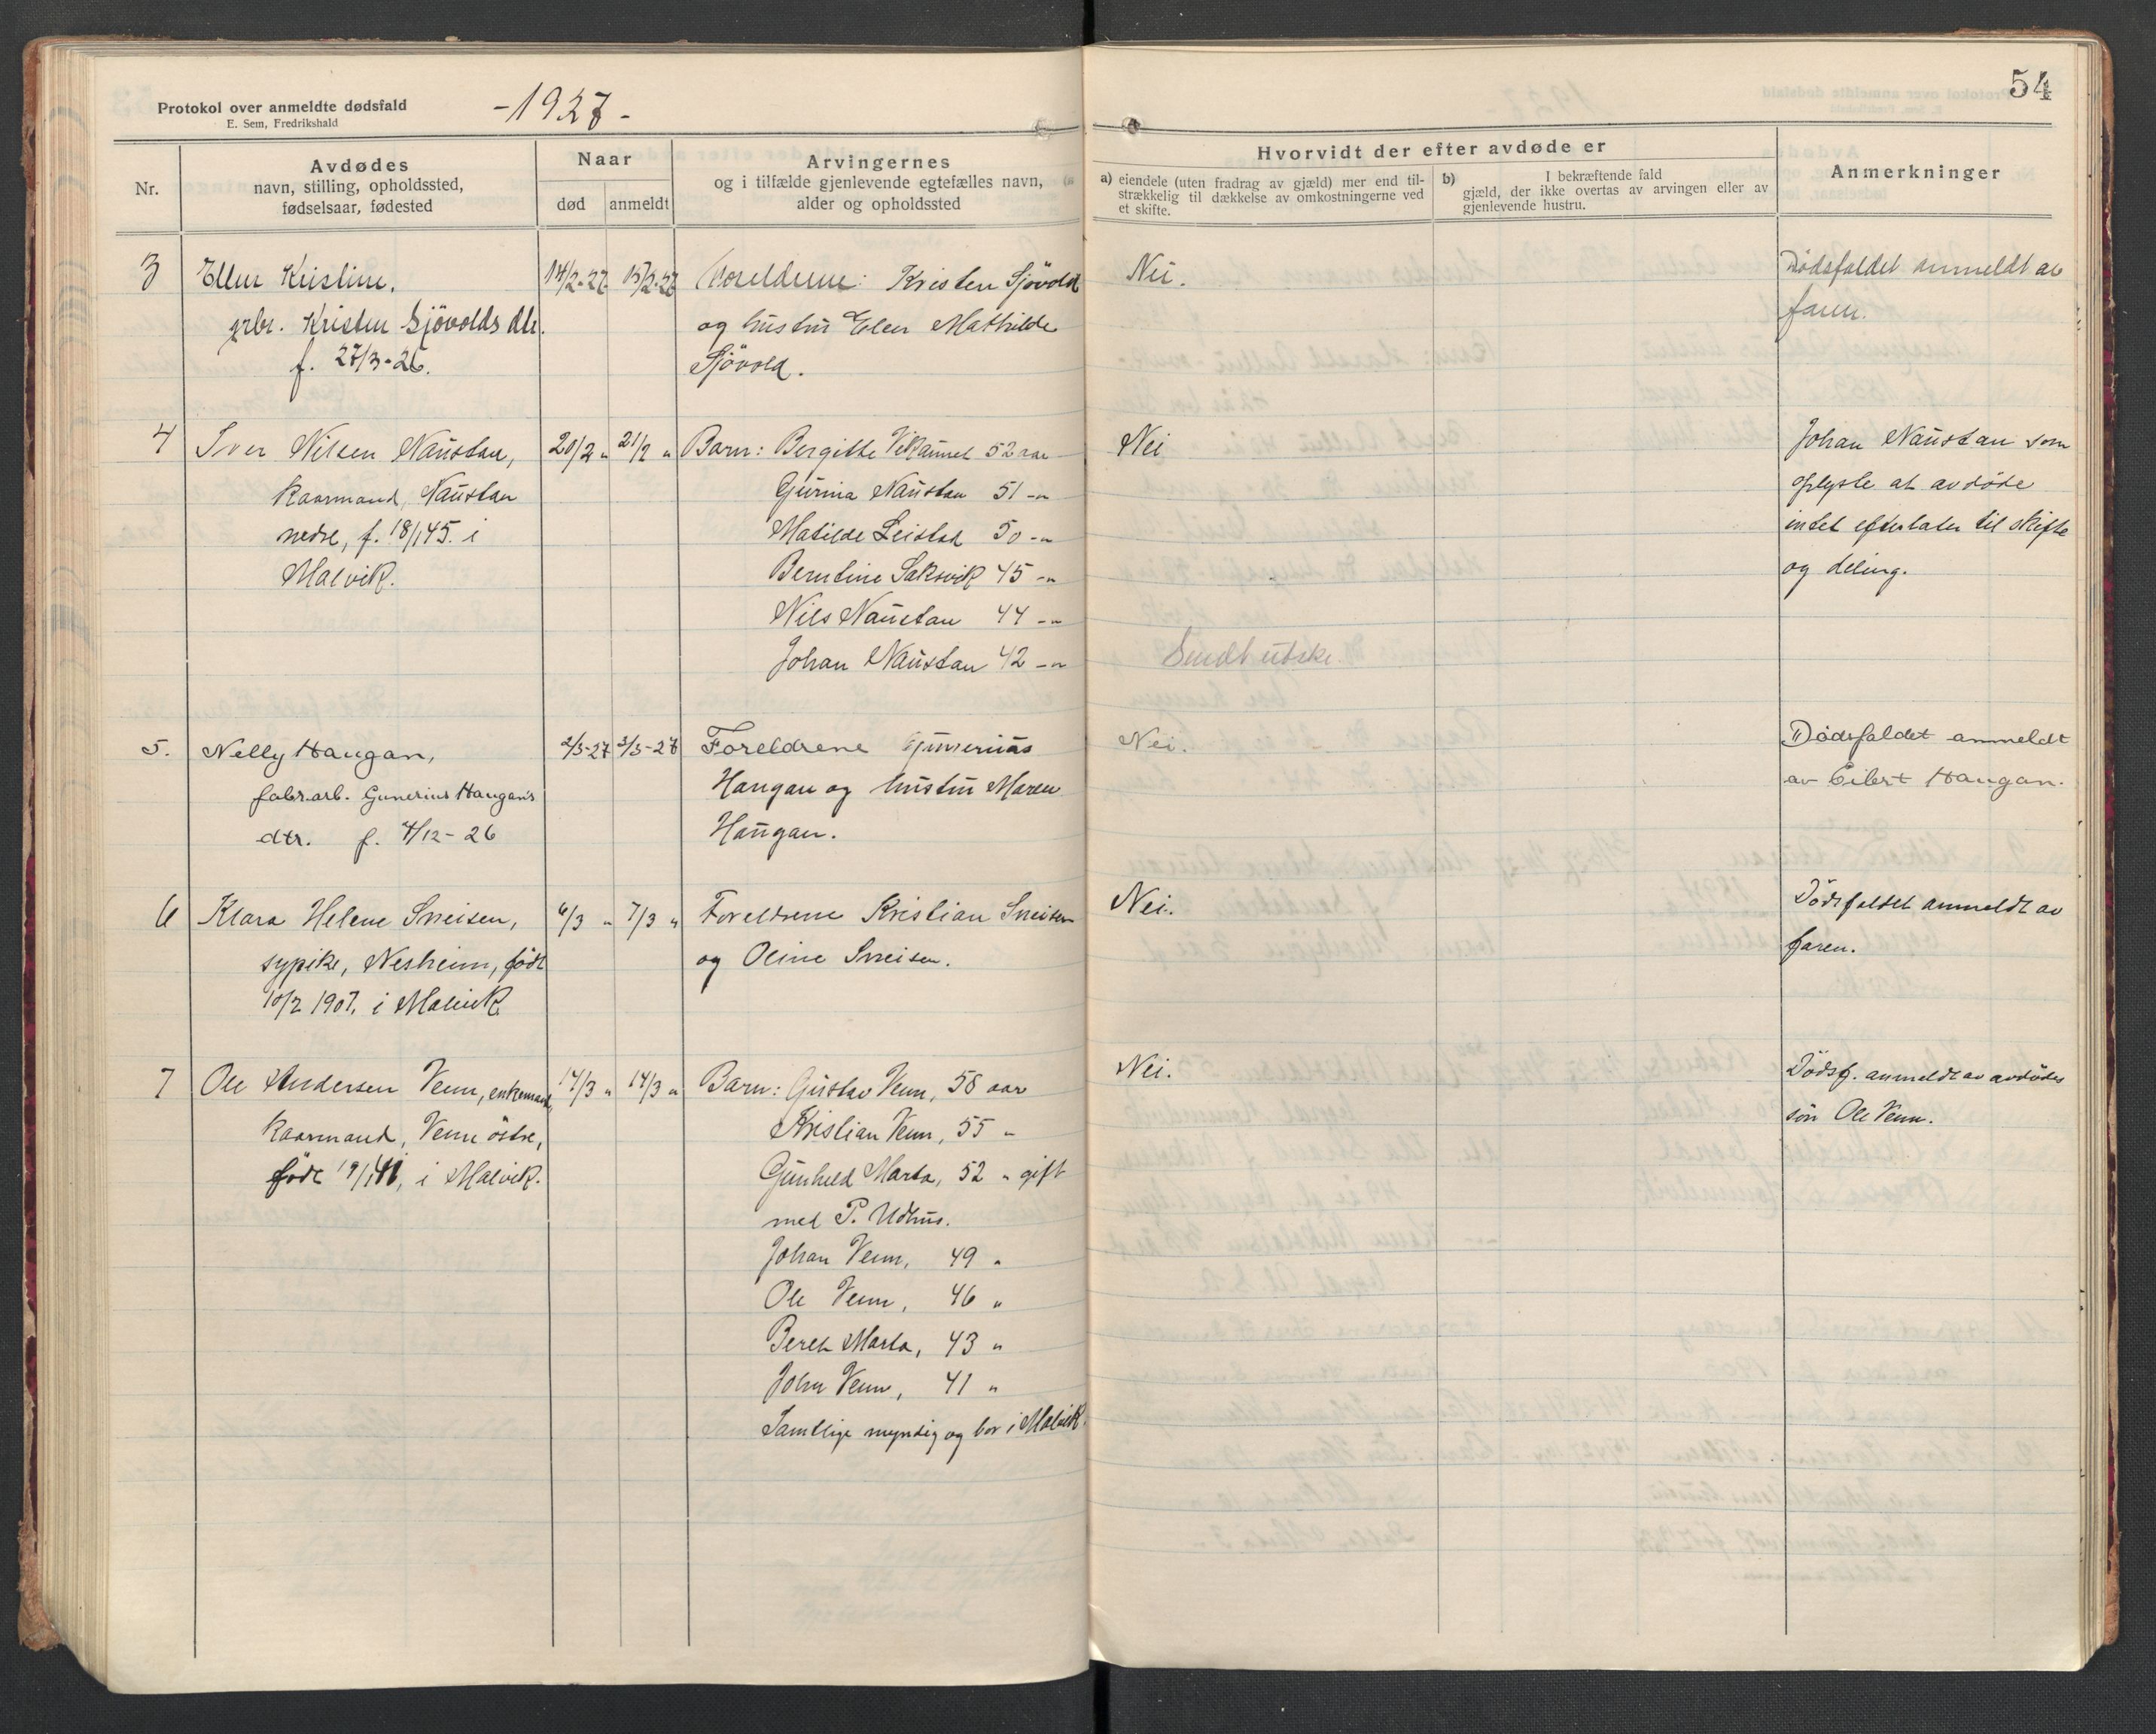 Protokol over anmeldte dødsfald
E. Sem, Fredrikshald
-1927-
54
Nr.
Avdødes
navn, stilling, opholdssted,
fødselsaar, fødested
Naar
død
anmeldt
Arvingernes
og i tilfælde gjenlevende egtefælles navn,
alder og opholdssted
Hvorvidt der efter avdøde er
a) eiendele (uten fradrag av gjæld) mer end til-
strækkelig til dækkelse av omkostningerne ved
et skifte.
b) I bekræftende fald
gjæld, der ikke overtas av arvingen eller av
gjenlevende hustru.
Anmerkninger
3
Ellen Kristine,
grbr. Kristen Sjövolds dtr.
f. 27/3-26.
14/2-27
15/2-27
Foreldrene: Kristen Sjövold
og hustru Elen Mathilde
Sjövold.
Nei.
Dødsfaldet anmeldt av
faren.
4
Iver Nilsen Naustan,
kaarmand, Naustan
nedre, f. 18/1 45. i
Malvik.
20/2 "
21/2 "
Barn: Bergitte Vikaunet 52 aar
Gurina Naustan 51 -"
Matilde Leistad 50 -"
Berntine Saksvik 45 -"
Nils Naustan 44 -"
Johan Naustan 42 -"
Nei
Sendt utskr.
Johan Naustan som
oplyste at avdøde
intet efterlater til skifte
og deling.
5.
Nelly Haugan,
fabr.arb. Gunerius Haugan's
dtr. f. 4/12-26
2/3-27
3/3-27
Foreldrene Gunerius
Haugan og hustru Maren
Haugan.
Nei.
Dødsfaldet anmeldt
av Eilert Haugan.
6
Klara Helene Sneisen,
sypike, Nesheim, født
10/2 1907. i Malvik
6/3 "
7/3 "
Foreldrene Kristian Sneisen
og Oline Sneisen.
Nei.
Dödsfaldet anmeldt av
faren.
7
Ole Andersen Venn, enkemand,
kaarmand, Venn östre,
född 19/1 41, i Malvik.
14/3 "
14/3 "
Barn: Gustav Venn, 58 aar
Kristian Venn, 55 "
Gunhild Marta, 52 " gift
med P. Udhus.
Johan Venn, 49 "
Ole Venn, 46 "
Beret Marta, 43 "
John Venn, 41 "
Samtlige myndig og bor i Malvik.
Nei.
Dödsf. anmeldt av avdødes
sön Ole Venn.